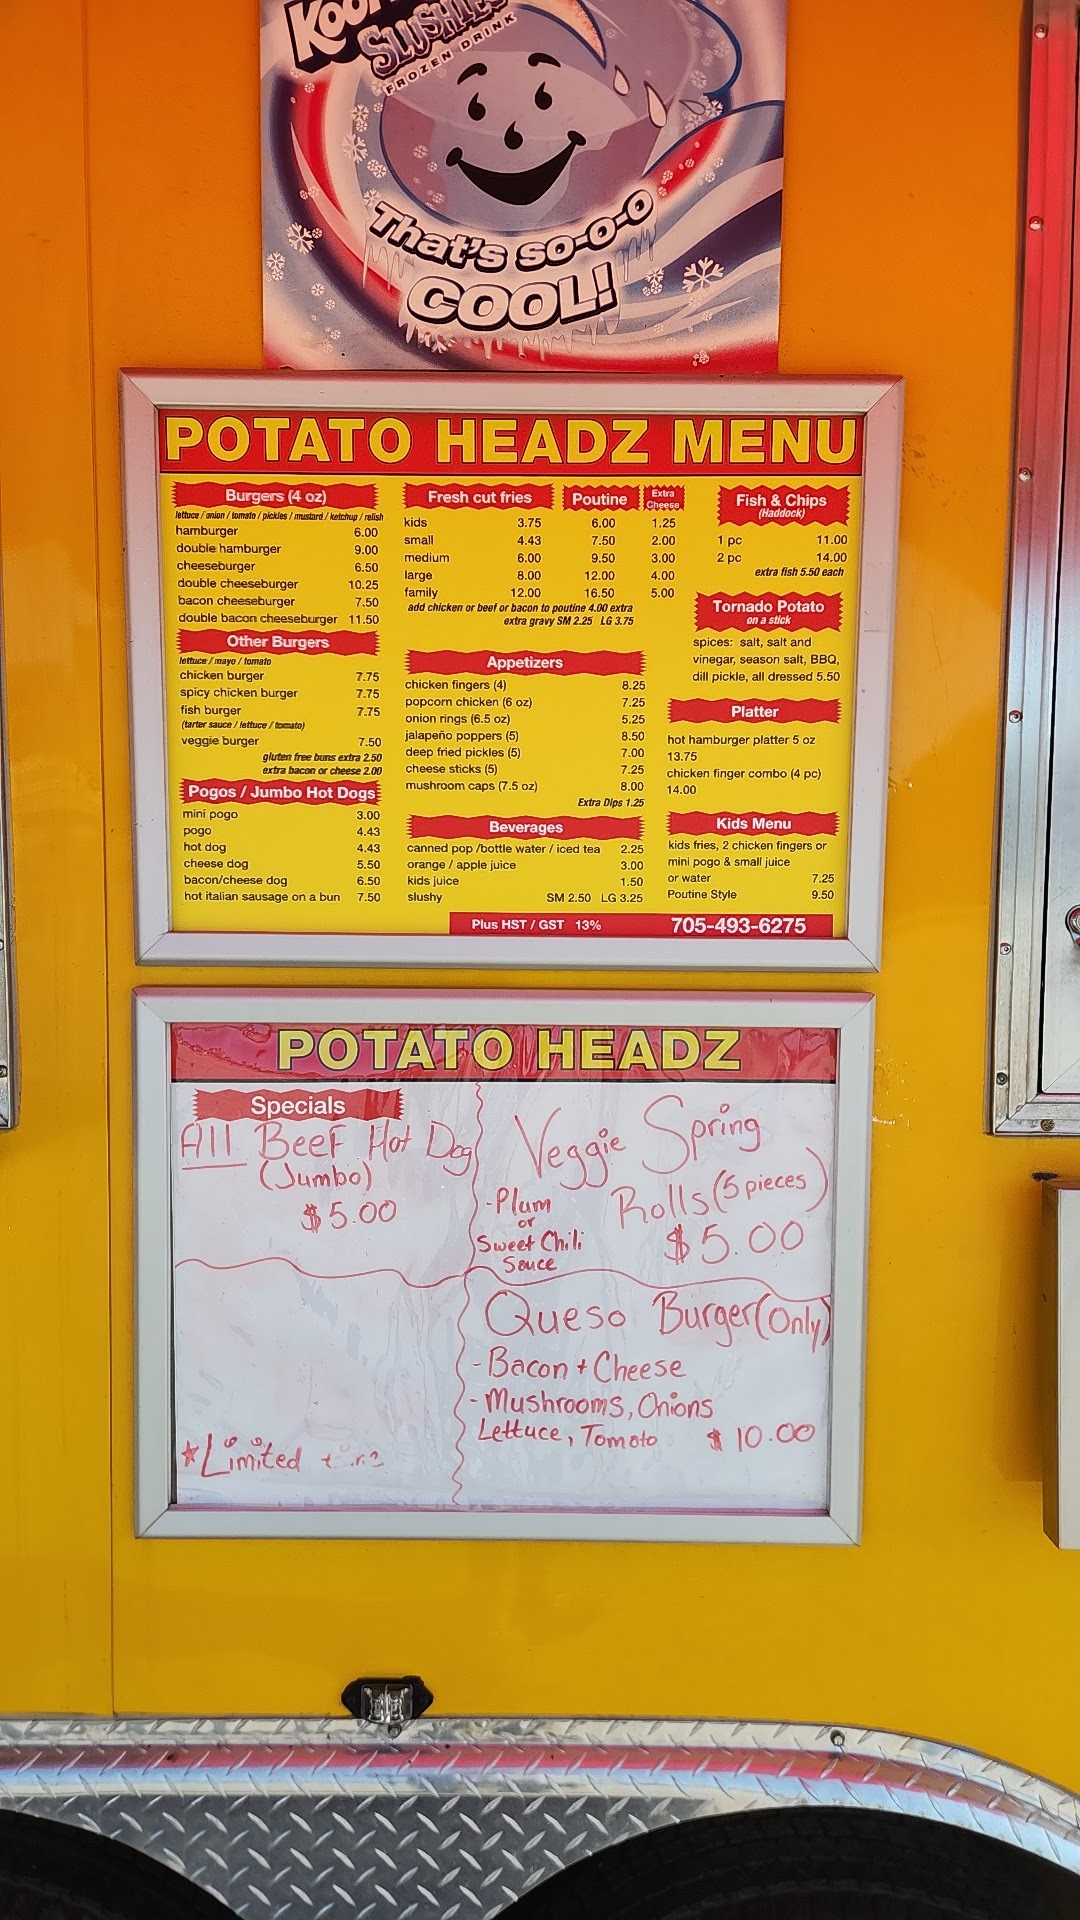 Kool
SLUSHIES
FROZEN DRINK
That's so-o-o
COOL!
POTATO HEADZ MENU
Burgers (4 oz)
lettuce / onion / tomato / pickles / mustard / ketchup / relish
hamburger 6.00
double hamburger 9.00
cheeseburger 6.50
double cheeseburger 10.25
bacon cheeseburger 7.50
double bacon cheeseburger 11.50
Other Burgers
lettuce / mayo / tomato
chicken burger 7.75
spicy chicken burger 7.75
fish burger 7.75
(tarter sauce / lettuce / tomato)
veggie burger 7.50
gluten free buns extra 2.50
extra bacon or cheese 2.00
Pogos / Jumbo Hot Dogs
mini pogo 3.00
pogo 4.43
hot dog 4.43
cheese dog 5.50
bacon/cheese dog 6.50
hot italian sausage on a bun 7.50
Fresh cut fries Poutine Extra Cheese
kids 3.75 6.00 1.25
small 4.43 7.50 2.00
medium 6.00 9.50 3.00
large 8.00 12.00 4.00
family 12.00 16.50 5.00
add chicken or beef or bacon to poutine 4.00 extra
extra gravy SM 2.25 LG 3.75
Appetizers
chicken fingers (4) 8.25
popcorn chicken (6 oz) 7.25
onion rings (6.5 oz) 5.25
jalapeño poppers (5) 8.50
deep fried pickles (5) 7.00
cheese sticks (5) 7.25
mushroom caps (7.5 oz) 8.00
Extra Dips 1.25
Beverages
canned pop /bottle water / iced tea 2.25
orange / apple juice 3.00
kids juice 1.50
slushy SM 2.50 LG 3.25
Fish & Chips
(Haddock)
1 pc 11.00
2 pc 14.00
extra fish 5.50 each
Tornado Potato
on a stick
spices: salt, salt and
vinegar, season salt, BBQ,
dill pickle, all dressed 5.50
Platter
hot hamburger platter 5 oz
13.75
chicken finger combo (4 pc)
14.00
Kids Menu
kids fries, 2 chicken fingers or
mini pogo & small juice
or water 7.25
Poutine Style 9.50
Plus HST / GST 13% 705-493-6275
POTATO HEADZ
Specials
All Beef Hot Dog
(Jumbo)
$5.00
Veggie Spring
Rolls (5 pieces)
- Plum
or
Sweet Chili
Sauce
$5.00
Queso Burger (Only)
- Bacon + Cheese
- Mushrooms, Onions
Lettuce, Tomato $10.00
*Limited